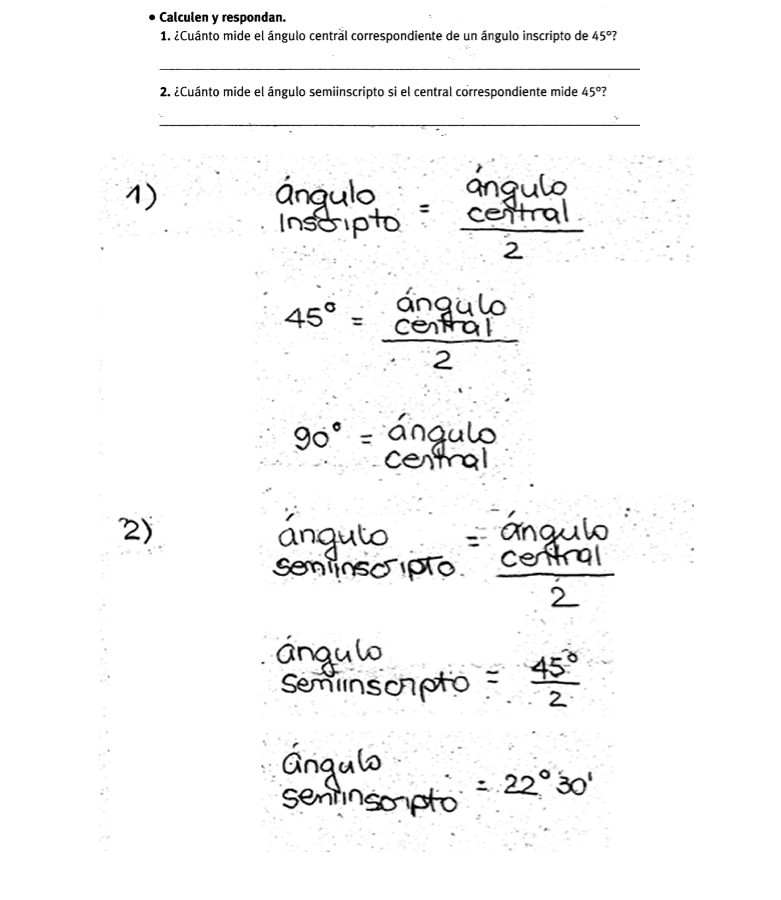 • Calculen y respondan.
1. ¿Cuánto mide el ángulo central correspondiente de un ángulo inscripto de 45º?
2. ¿Cuánto mide el ángulo semiinscripto si el central correspondiente mide 45º?
1) ángulo inscripto = ángulo central / 2
45° = ángulo central / 2
90° = ángulo central
2) ángulo semiinscripto = ángulo central / 2
ángulo semiinscripto = 45° / 2
ángulo semiinscripto = 22° 30'